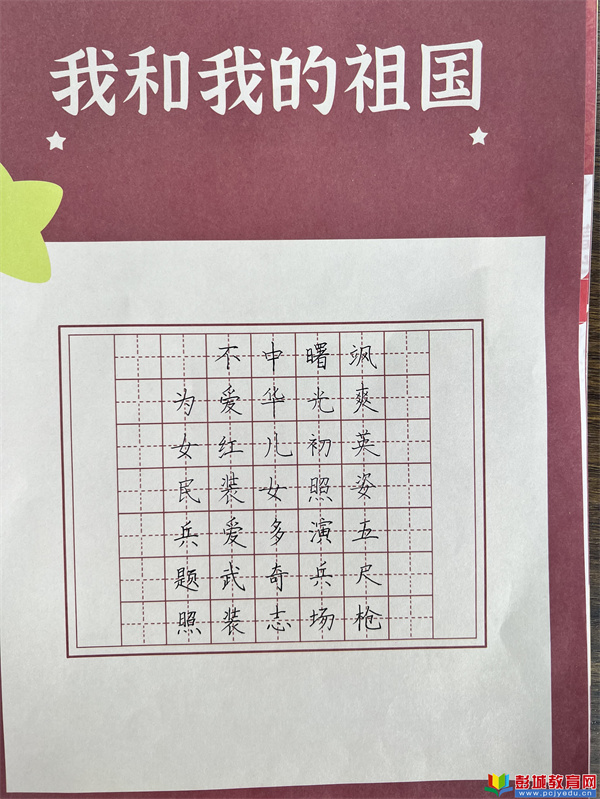 我和我的祖国
飒爽英姿五尺枪
曙光初照演兵场
中华儿女多奇志
不爱红装爱武装
为女民兵题照
彭城教育网
www.pcjyedu.cn